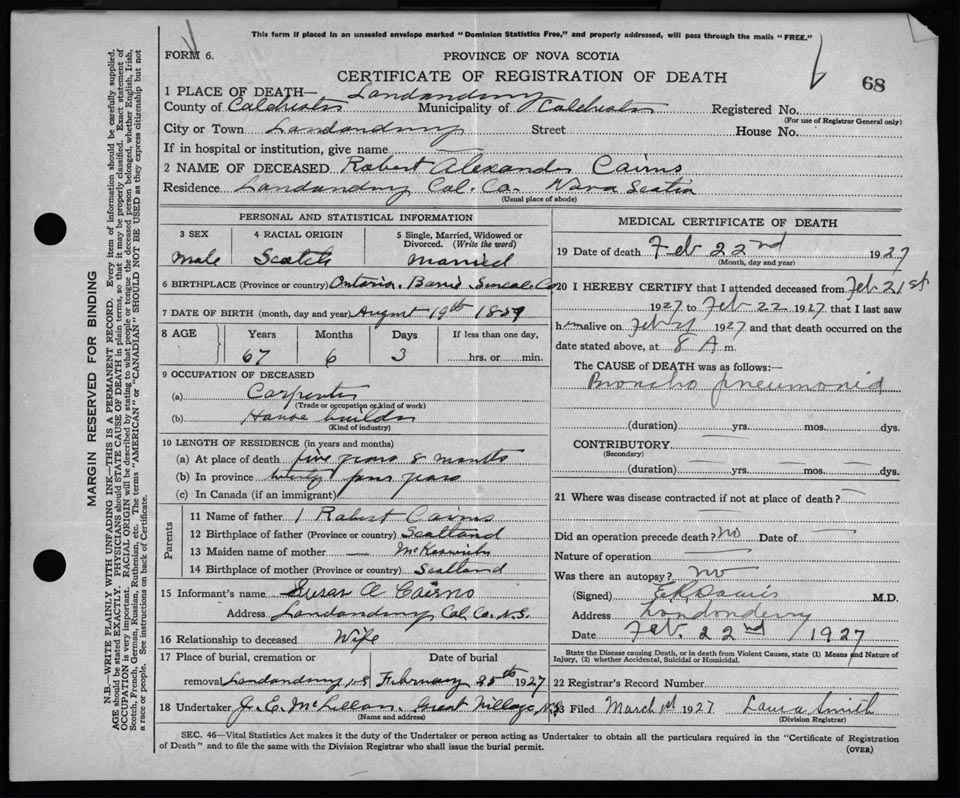 This form if placed in an unsealed envelope marked "Dominion Statistics Free," and properly addressed, will pass through the mails "FREE."
FORM 6.
PROVINCE OF NOVA SCOTIA
68
CERTIFICATE OF REGISTRATION OF DEATH
1 PLACE OF DEATH— Londonderry
County of Colchester Municipality of Colchester Registered No.
(For use of Registrar General only)
City or Town Londonderry Street House No.
If in hospital or institution, give name
2 NAME OF DECEASED Robert Alexander Cairns
Residence Londonderry Col. Co. Nova Scotia
(Usual place of abode)
PERSONAL AND STATISTICAL INFORMATION
3 SEX 4 RACIAL ORIGIN 5 Single, Married, Widowed or Divorced. (Write the word)
Male Scotch Married
6 BIRTHPLACE (Province or country) Ontario. Barrie Simcoe Co
7 DATE OF BIRTH (month, day and year) August 19th 1859
8 AGE Years Months Days If less than one day,
67 6 3 hrs. or min.
9 OCCUPATION OF DECEASED
(a) Carpenter
(Trade or occupation or kind of work)
(b) House builder
(Kind of industry)
10 LENGTH OF RESIDENCE (in years and months)
(a) At place of death five years 8 months
(b) In province twenty four years
(c) In Canada (if an immigrant)
Parents
11 Name of father Robert Cairns
12 Birthplace of father (Province or country) Scotland
13 Maiden name of mother —
14 Birthplace of mother (Province or country) Scotland
15 Informant's name Susan A Cairns
Address Londonderry Col. Co. N.S.
16 Relationship to deceased Wife
17 Place of burial, cremation or Date of burial
removal Londonderry N.S February 25th 1927
18 Undertaker J. E. McLellan. Great Village, N.S
(Name and address)
MEDICAL CERTIFICATE OF DEATH
19 Date of death Feb 22nd 1927
(Month, day and year)
20 I HEREBY CERTIFY that I attended deceased from Feb 21st
1927 to Feb 22 1927 that I last saw
him alive on Feb 21 1927 and that death occurred on
date stated above, at 8 A m.
The CAUSE of DEATH was as follows:—
Broncho pneumonia
(duration) yrs. mos. dys.
CONTRIBUTORY.
(Secondary)
(duration) yrs. mos. dys.
21 Where was disease contracted if not at place of death? —
Did an operation precede death? no Date of —
Nature of operation —
Was there an autopsy? no
(Signed) E R Davis M.D.
Address Londonderry
Date Feb. 22nd 1927
State the Disease causing Death, or in death from Violent Causes, state (1) Means and Nature of
Injury, (2) whether Accidental, Suicidal or Homicidal.
22 Registrar's Record Number
23 Filed March 1st 1927 Laura Smith
(Division Registrar)
SEC. 46—Vital Statistics Act makes it the duty of the Undertaker or person acting as Undertaker to obtain all the particulars required in the "Certificate of Registration
of Death" and to file the same with the Division Registrar who shall issue the burial permit.
(OVER)
MARGIN RESERVED FOR BINDING
N.B.—WRITE PLAINLY WITH UNFADING INK—THIS IS A PERMANENT RECORD. Every item of information should be carefully supplied.
AGE should be stated EXACTLY. PHYSICIANS should STATE CAUSE OF DEATH in plain terms, so that it may be properly classified. Exact statement of
OCCUPATION is very important. RACIAL ORIGIN will be described by stating to what people or tongue the deceased person belonged, whether English, Irish,
Scotch, French, German, Russian, Ruthenian, etc. The terms "AMERICAN" or "CANADIAN" SHOULD NOT BE USED as they express citizenship but not
a race or people. See instructions on back of Certificate.